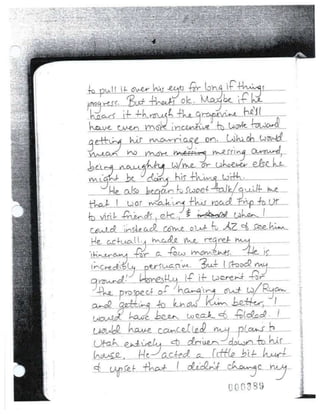 to pull it over his eyes for long if things
progress. But that's ok. Maybe if he
hears it through the grapevine he'll
have even more incentive to work toward
getting his marriage on. Which would
mean no more messing around,
being naughty w/me or whoever else he
might be doing his thing with.
He also began to sweet talk/guilt me
that I was making this road trip to UT
to visit friends, etc., & when I
could instead come out to AZ & see him.
He actually made me regret my
itinerary for a few moments. He is
incredibly persuasive. But I stood my
ground. Honestly if it weren't for
the prospect of hanging out w/Ryan
and getting to know Kim better, I
would have been weak & folded. I
would have cancelled my plans to
Utah entirely & driven down to his
house. He acted a little bit hurt
& upset that I didn't change my
000389